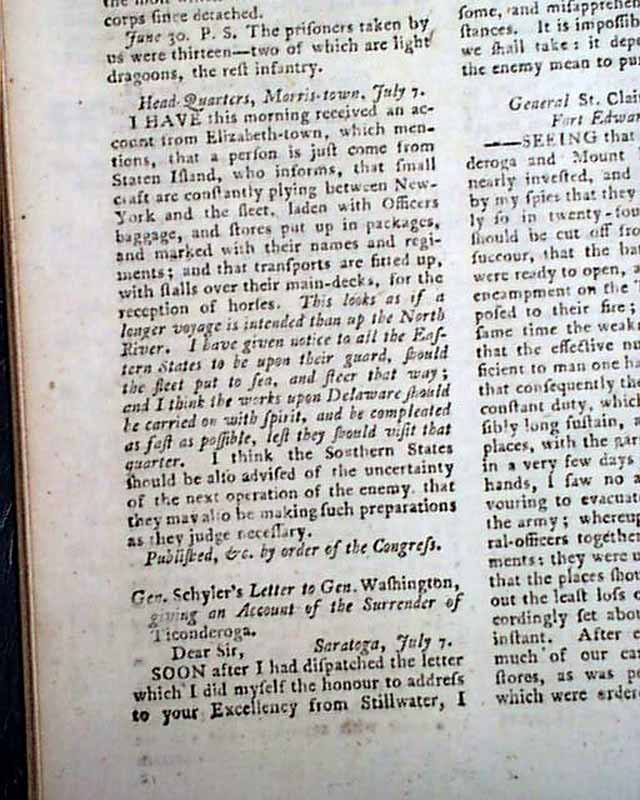 corps ſince detached.
June 30. P. S. The priſoners taken by
us were thirteen—two of which are light
dragoons, the reſt infantry.
Head-Quarters, Morris-town, July 7.
I HAVE this morning received an ac-
count from Elizabeth-town, which men-
tions, that a perſon is juſt come from
Staten Iſland, who informs, that ſmall
craft are conſtantly plying between New-
York and the fleet, laden with Officers
baggage, and ſtores put up in packages,
and marked with their names and regi-
ments; and that tranſports are fitted up,
with ſtalls over their main-decks, for the
reception of horſes. This looks as if a
longer voyage is intended than up the North
River. I have given notice to all the Eaſ-
tern States to be upon their guard, ſhould
the fleet put to ſea, and ſteer that way;
and I think the works upon Delaware ſhould
be carried on with ſpirit, and be compleated
as faſt as poſſible, leſt they ſhould viſit that
quarter. I think the Southern States
ſhould be alſo adviſed of the uncertainty
of the next operation of the enemy, that
they may alſo be making ſuch preparations
as they judge neceſſary.
Publiſhed, &c. by order of the Congreſs.
Gen. Schyler's Letter to Gen. Waſhington,
giving an Account of the Surrender of
Ticonderoga.
Dear Sir, Saratoga, July 7.
SOON after I had diſpatched the letter
which I did myſelf the honour to addreſs
to your Excellency from Stillwater, I
ſome, and miſapprehen
ſtances. It is impoſſib
we ſhall take: it depe
the enemy mean to pur
General St. Clai
Fort Edwar
——SEEING that
deroga and Mount
nearly inveſted, and
by my ſpies that they
ly ſo in twenty-fou
ſhould be cut off fro
ſuccour, that the bat
were ready to open, a
encampment on the
poſed to their fire;
ſame time the weak
that the effective nu
ficient to man one ha
that conſequently the
conſtant duty, which
ſibly long ſuſtain, a
places, with the gar
in a very few days
hands, I ſaw no a
vouring to evacuat
the army; whereup
ral-officers together
ments: they were u
that the places ſhou
out the leaſt loſs o
cordingly ſet abou
inſtant. After e
much of our ca
ſtores, as was po
which were ordere